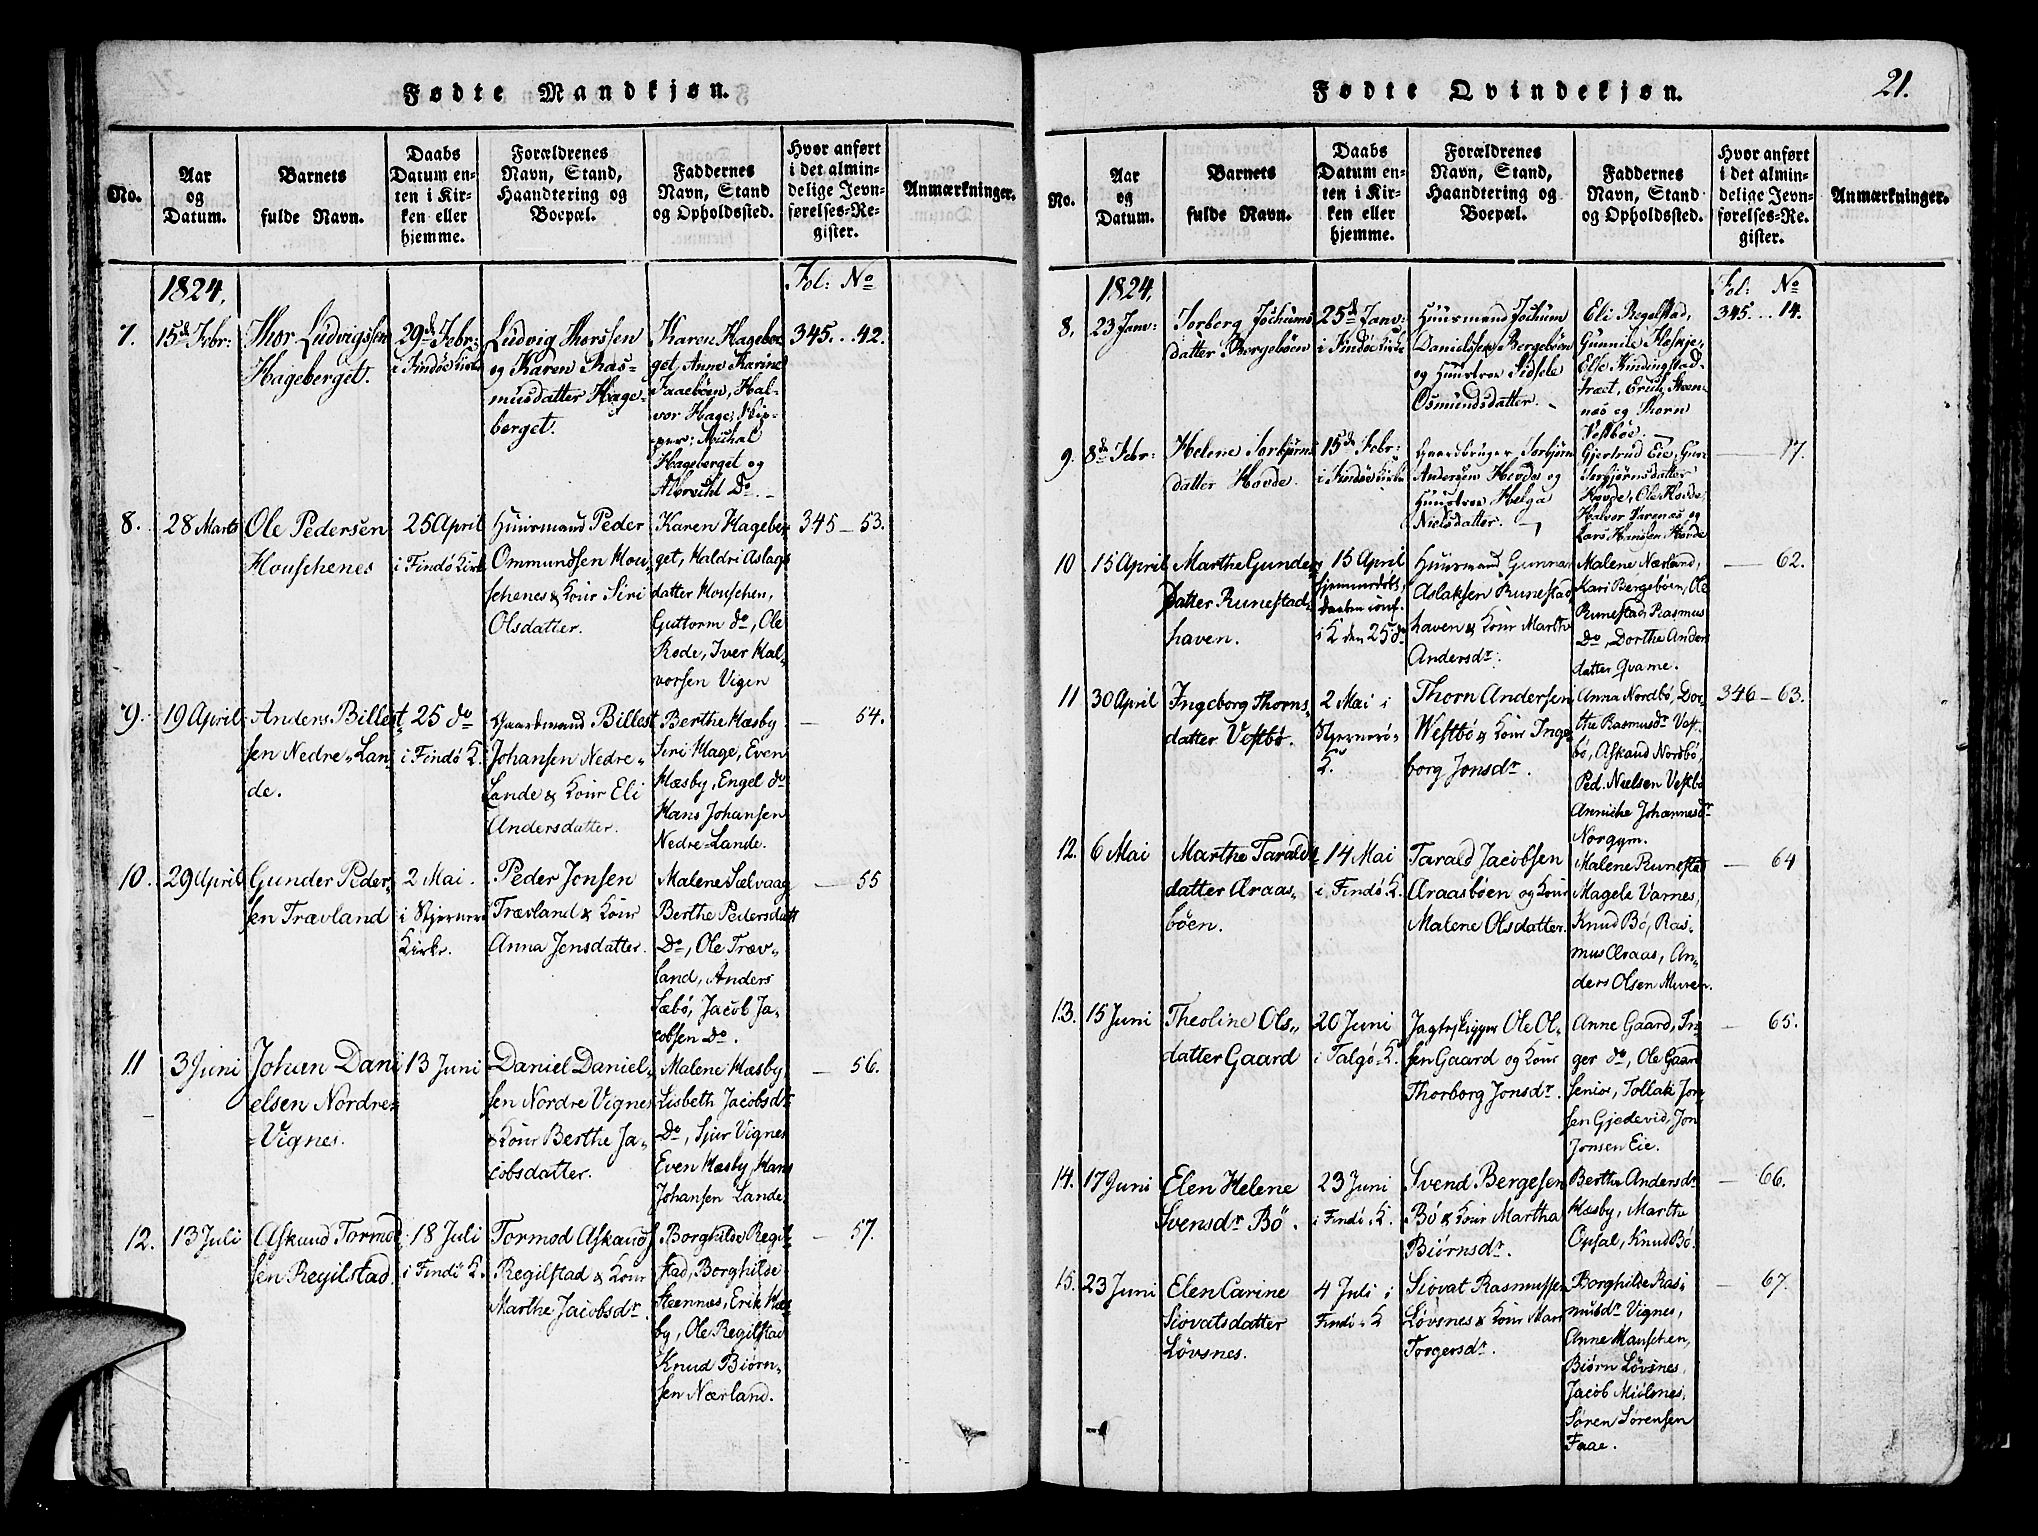 Fødte Mandkjøn.
No.
Aar
og
Datum.
Barnets
fulde Navn.
Daabs
Datum en-
ten i Kir-
ken eller
hjemme.
Forældrenes
Navn, Stand,
Haandtering og
Boepæl.
Faddernes
Navn, Stand
og Opholdssted.
Hvor anført
i det almin-
delige Jevn-
førelses-Re-
gister.
Anmærkninger.
1824.
Fol: No
7.
15de Febr:
Thor Ludvigssen
Hageberget.
29de Febr:
i Findöe Kirke
Ludvig Thorssen
og Karen Ras-
musdatter Hage-
berget.
Karen Hageber
get, Anne Karine
Faaeböen, Hal-
vor Hage,
Michal
Hageberget og
Albrecht Do. –
345. . 42.
8.
28 Marts
Ole Pedersen
Houschenes
25 April
i Findö Kirk
Huusmand Peder
Ommundsen Hou-
schenes & Kone Siri
Olsdatter.
Karen Hageber
get, Maldri Aslags
datter Houschen,
Guttorm do, Ole
Rode, Iver Hal-
vorsen Vigen
345 – 53.
9.
19 April
Anders Billest
sen Nedre-Lan-
de.
25 do
i Findö K.
Gaardmand Billest
Johansen Nedre-
Lande & Kone Eli
Andersdatter.
Berthe Hæsby
Siri Hage, Even
Hæsby, Engel do
Hans Johansen
Nedre-Lande.
– 54.
10.
29 April
Gunder Peder-
sen Trævland
2 Mai.
i Stjernerö
Kirke.
Peder Jonsen
Trævland & Kone
Anna Jensdatter.
Malene Sælvaag
Berthe Pedersdatt
Do, Ole Træv-
land, Anders
Sæbö, Jacob Ja-
cobsen Do.
– 55
11
3 Juni
Johan Dani
elsen Nordre-
-Vignes.
13 Juni
Daniel Daniel-
sen Nordre Vignes
& Kone Berthe Ja-
cobsdatter.
Malene Hæsby
Lisbeth Jacobsdr
Do, Sjur Vignes
Even Hæsby, Hans
Johansen Lande.
– 56.
12.
13 Juli
Askaud Tormod-
sen Regilstad.
18 Juli
i Findö K.
Tormod Askauds
Regilstad & Kone
Marthe Jacobsdr.
Borghilde Regil-
stad, Borghilde
Steennes, Erik Hæs
by, Ole Regilstad
Knud Biörn-
sen Nærland.
– 57.
Fødte Qvindekjøn.
21.
No.
Aar
og
Datum.
Barnets
fulde Navn.
Daabs
Datum en-
ten i Kir-
ken eller
hjemme.
Forældrenes
Navn, Stand,
Haandtering og
Boepæl.
Faddernes
Navn, Stand
og Opholdssted.
Hvor anført
i det almin-
delige Jevn-
førelses-Re-
gister.
Anmærkninger.
1824.
Fol: No
8.
23 Janv:
Torberg Jöchums
datter Bergeböen
25de Janv:
i Findöe Kirke
Huusmand Jöchum
Danielssen Bergeböen
og Huustroe Sidsele
Osmundsdatter. –
Eli Regelstad,
Gunnile Hæskje,
Else Kindingstad-
træet, Erich Steen-
næs og Thorn
Vestböe. –
345. . . 14.
9.
8de Febr:
Helene Torbjörns
datter Hovde.
15de Febr:
i Findöe Kirke
Gaardbruger Torbjörn
Andersen Hovde og
Huustroe Helga
Nielsdatter. –
Gjertrud Eie, Gure
Torbjörnsdatter
Hovde, Ole Hovde,
Halvor Varenæs og
Lars Hansen Hovde
– 17.
10
15 April
Marthe Gunder
datter Runestad-
haven.
15 April
hjemmedöbt,
daaben conf.
i K den 25 do
Huusmand Gunnar
Aslaksen Runestad
haven & Kone Marthe
Andersdr.
Malene Nærland,
Kari Bergeböen, Ole
Runestad, Rasmus
Do, Dorthe Anders
datter Qvame.
– 62.
11
30 April
Ingeborg Thorns-
datter Vestbö.
2 Mai i
Stjernerö-
K.
Thorn Andersen
Westbö & Kone Inge
borg Jonsdr.
Anna Nordbö, Dor-
the Rasmusdr Vest-
bö, Askaud Nordbö,
Ped. Nielsen Vestbö
Anniche Johannesdr
Norgym.
346 – 63.
12.
6 Mai
Marthe Tarald
datter Araas-
böen.
14 Mai
i Findö K.
Tarald Jacobsen
Araasböen og Kone
Malene Olsdatter.
Malene Runestad
Magele Varnes,
Knud Bö, Ras-
mus Araas, An-
ders Olsen Muren.
– 64
13.
15 Juni
Theoline Ols-
datter Gaard
20 Juni
i Talgö K.
Jagtskipper Ole Ol-
sen Gaard og Kone
Thorborg Jonsdr.
Anne Gaard, In-
ger do, Ole Gaard
Senior, Tollak Jon-
sen Gjedevid, Jon
Jonsen Eie.
– 65.
14.
17 Juni
Elen Helene
Svensdr Bö.
23 Juni
i Findö K.
Svend Bergesen
Bö & Kone Martha
Biörnsdr.
Berthe Andersdr
Hæsby, Marthe
Opsal, Knud Bö.
– 66.
15.
23 Juni
Elen Carine
Siövatsdatter
Lövsnes.
4 Juli i
Findö K
Siövat Rasmussen
Lövsnes & Kone Mari
Torgersdr.
Borghilde Ras-
musdr Vignes,
Anne Hauschen,
Biörn Lövsnes,
Jacob Miölsnes,
Sören Sörensen
Faae.
– 67.